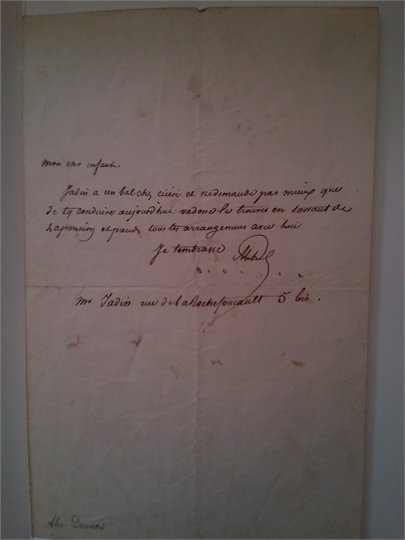 mon cher enfant.
Jadin a un bal chez cicéri et ne demande pas mieux que
de t'y conduire aujourd'hui. va donc le trouver en sortant de
ta pension et prends tous tes arrangemens avec lui
Je t'embrasse
Mr Jadin rue de la Rochefoucault 5 bis.
Alex Dumas